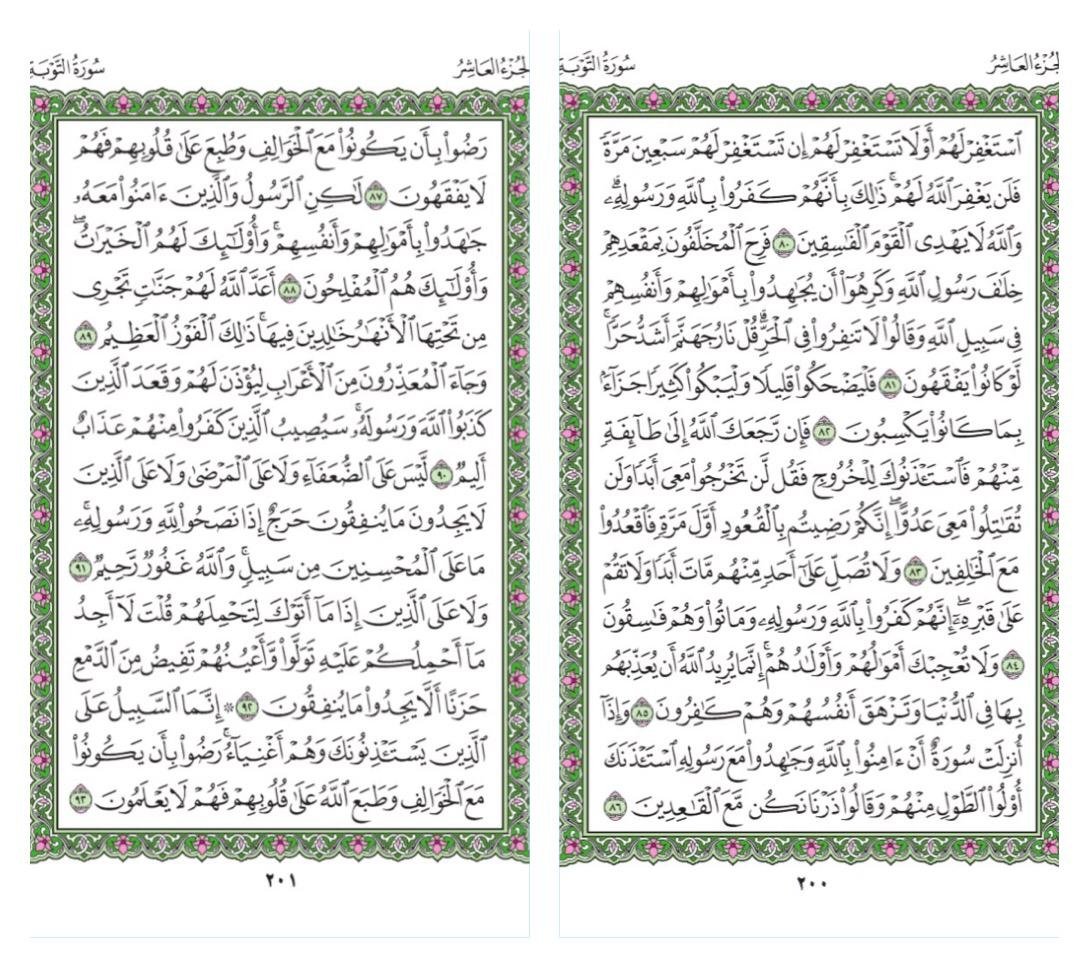 الجزء العاشر
سورة التوبة
ٱسۡتَغۡفِرۡ لَهُمۡ أَوۡ لَا تَسۡتَغۡفِرۡ لَهُمۡ إِن تَسۡتَغۡفِرۡ لَهُمۡ سَبۡعِينَ مَرَّةٗ
فَلَن يَغۡفِرَ ٱللَّهُ لَهُمۡۚ ذَٰلِكَ بِأَنَّهُمۡ كَفَرُواْ بِٱللَّهِ وَرَسُولِهِۦۗ
وَٱللَّهُ لَا يَهۡدِي ٱلۡقَوۡمَ ٱلۡفَٰسِقِينَ ٨٠ فَرِحَ ٱلۡمُخَلَّفُونَ بِمَقۡعَدِهِمۡ
خِلَٰفَ رَسُولِ ٱللَّهِ وَكَرِهُوٓاْ أَن يُجَٰهِدُواْ بِأَمۡوَٰلِهِمۡ وَأَنفُسِهِمۡ
فِي سَبِيلِ ٱللَّهِ وَقَالُواْ لَا تَنفِرُواْ فِي ٱلۡحَرِّۗ قُلۡ نَارُ جَهَنَّمَ أَشَدُّ حَرّٗاۚ
لَّوۡ كَانُواْ يَفۡقَهُونَ ٨١ فَلۡيَضۡحَكُواْ قَلِيلٗا وَلۡيَبۡكُواْ كَثِيرٗا جَزَآءَۢ
بِمَا كَانُواْ يَكۡسِبُونَ ٨٢ فَإِن رَّجَعَكَ ٱللَّهُ إِلَىٰ طَآئِفَةٖ
مِّنۡهُمۡ فَٱسۡتَـٔۡذَنُوكَ لِلۡخُرُوجِ فَقُل لَّن تَخۡرُجُواْ مَعِيَ أَبَدٗا وَلَن
تُقَٰتِلُواْ مَعِيَ عَدُوًّاۖ إِنَّكُمۡ رَضِيتُم بِٱلۡقُعُودِ أَوَّلَ مَرَّةٖ فَٱقۡعُدُواْ
مَعَ ٱلۡخَٰلِفِينَ ٨٣ وَلَا تُصَلِّ عَلَىٰٓ أَحَدٖ مِّنۡهُم مَّاتَ أَبَدٗا وَلَا تَقُمۡ
عَلَىٰ قَبۡرِهِۦٓۖ إِنَّهُمۡ كَفَرُواْ بِٱللَّهِ وَرَسُولِهِۦ وَمَاتُواْ وَهُمۡ فَٰسِقُونَ
٨٤ وَلَا تُعۡجِبۡكَ أَمۡوَٰلُهُمۡ وَأَوۡلَٰدُهُمۡۚ إِنَّمَا يُرِيدُ ٱللَّهُ أَن يُعَذِّبَهُم
بِهَا فِي ٱلدُّنۡيَا وَتَزۡهَقَ أَنفُسُهُمۡ وَهُمۡ كَٰفِرُونَ ٨٥ وَإِذَآ
أُنزِلَتۡ سُورَةٌ أَنۡ ءَامِنُواْ بِٱللَّهِ وَجَٰهِدُواْ مَعَ رَسُولِهِ ٱسۡتَـٔۡذَنَكَ
أُوْلُواْ ٱلطَّوۡلِ مِنۡهُمۡ وَقَالُواْ ذَرۡنَا نَكُن مَّعَ ٱلۡقَٰعِدِينَ ٨٦
٢٠٠
الجزء العاشر
سورة التوبة
رَضُواْ بِأَن يَكُونُواْ مَعَ ٱلۡخَوَالِفِ وَطُبِعَ عَلَىٰ قُلُوبِهِمۡ فَهُمۡ
لَا يَفۡقَهُونَ ٨٧ لَٰكِنِ ٱلرَّسُولُ وَٱلَّذِينَ ءَامَنُواْ مَعَهُۥ
جَٰهَدُواْ بِأَمۡوَٰلِهِمۡ وَأَنفُسِهِمۡۚ وَأُوْلَٰٓئِكَ لَهُمُ ٱلۡخَيۡرَٰتُۖ
وَأُوْلَٰٓئِكَ هُمُ ٱلۡمُفۡلِحُونَ ٨٨ أَعَدَّ ٱللَّهُ لَهُمۡ جَنَّٰتٖ تَجۡرِي
مِن تَحۡتِهَا ٱلۡأَنۡهَٰرُ خَٰلِدِينَ فِيهَاۚ ذَٰلِكَ ٱلۡفَوۡزُ ٱلۡعَظِيمُ ٨٩
وَجَآءَ ٱلۡمُعَذِّرُونَ مِنَ ٱلۡأَعۡرَابِ لِيُؤۡذَنَ لَهُمۡ وَقَعَدَ ٱلَّذِينَ
كَذَبُواْ ٱللَّهَ وَرَسُولَهُۥۚ سَيُصِيبُ ٱلَّذِينَ كَفَرُواْ مِنۡهُمۡ عَذَابٌ
أَلِيمٞ ٩٠ لَّيۡسَ عَلَى ٱلضُّعَفَآءِ وَلَا عَلَى ٱلۡمَرۡضَىٰ وَلَا عَلَى ٱلَّذِينَ
لَا يَجِدُونَ مَا يُنفِقُونَ حَرَجٌ إِذَا نَصَحُواْ لِلَّهِ وَرَسُولِهِۦۚ
مَا عَلَى ٱلۡمُحۡسِنِينَ مِن سَبِيلٖۚ وَٱللَّهُ غَفُورٞ رَّحِيمٞ ٩١
وَلَا عَلَى ٱلَّذِينَ إِذَا مَآ أَتَوۡكَ لِتَحۡمِلَهُمۡ قُلۡتَ لَآ أَجِدُ
مَآ أَحۡمِلُكُمۡ عَلَيۡهِ تَوَلَّواْ وَّأَعۡيُنُهُمۡ تَفِيضُ مِنَ ٱلدَّمۡعِ
حَزَنًا أَلَّا يَجِدُواْ مَا يُنفِقُونَ ٩٢ ۞ إِنَّمَا ٱلسَّبِيلُ عَلَى
ٱلَّذِينَ يَسۡتَـٔۡذِنُونَكَ وَهُمۡ أَغۡنِيَآءُۚ رَضُواْ بِأَن يَكُونُواْ
مَعَ ٱلۡخَوَالِفِ وَطَبَعَ ٱللَّهُ عَلَىٰ قُلُوبِهِمۡ فَهُمۡ لَا يَعۡلَمُونَ ٩٣
٢٠١